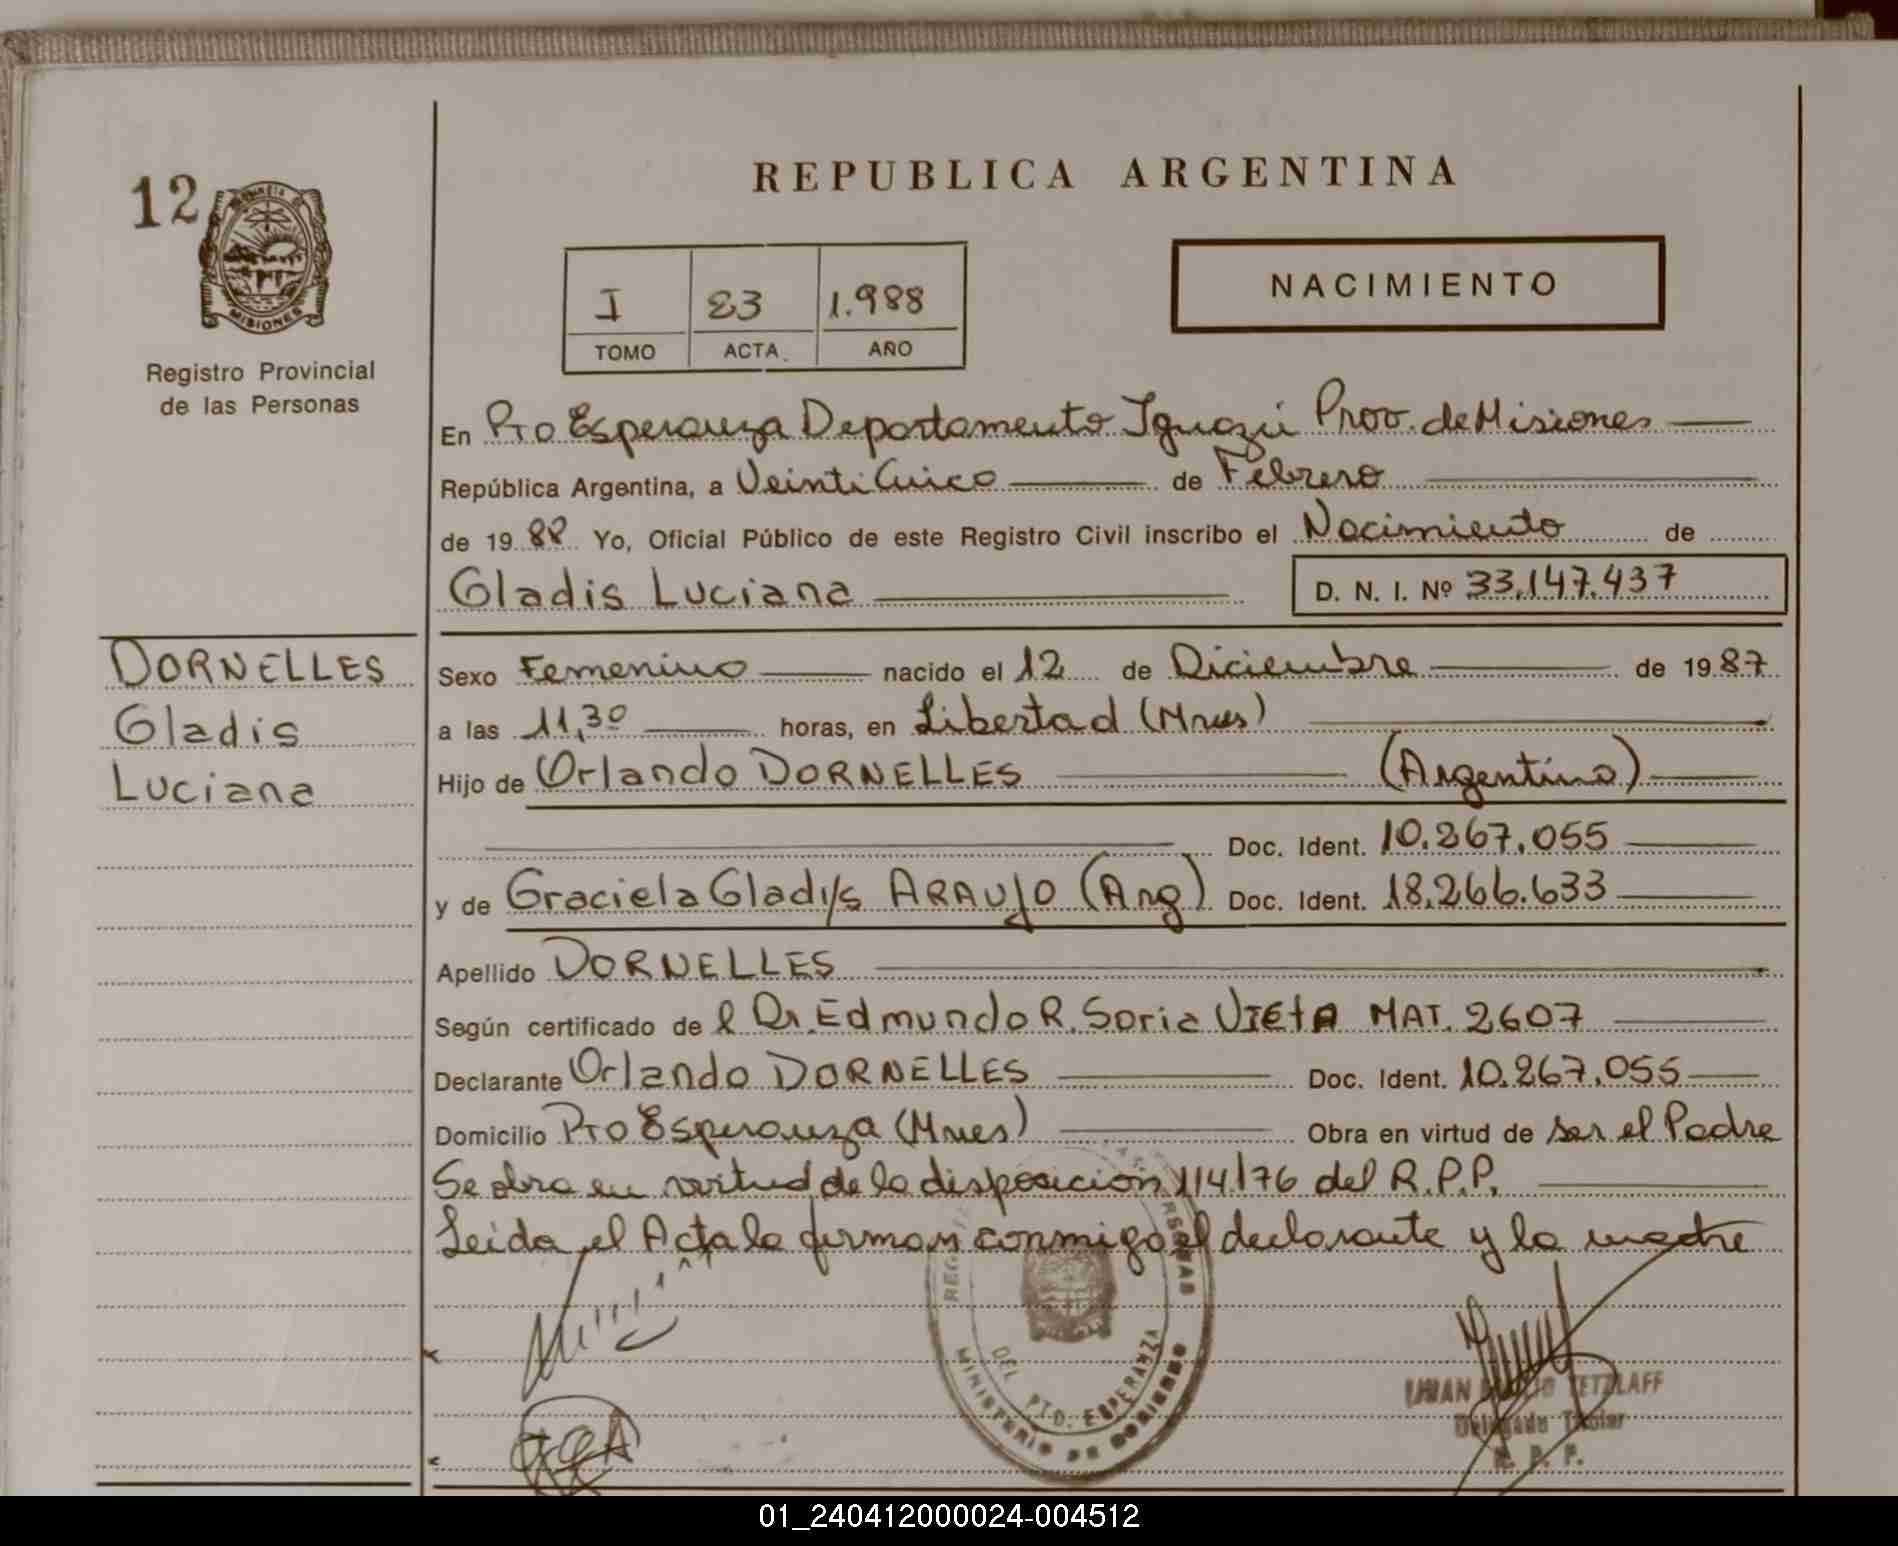 REPUBLICA ARGENTINA
12
MISIONES
Registro Provincial
de las Personas
NACIMIENTO
I 23 1.988
TOMO ACTA AÑO
En Pto Esperanza Departamento Iguazú Prov. de Misiones
República Argentina, a Veinti Cinco de Febrero
de 1988 Yo, Oficial Público de este Registro Civil inscribo el Nacimiento de
Gladis Luciana D. N. I. Nº 33.147.437
DORNELLES
Gladis
Luciana
Sexo Femenino nacido el 12 de Diciembre de 1987
a las 11,30 horas, en Libertad (Mnes)
Hijo de Orlando DORNELLES (Argentino)
Doc. Ident. 10.267.055
y de Graciela Gladys ARAUJO (Arg) Doc. Ident. 18.266.633
Apellido DORNELLES
Según certificado de l Dr. Edmundo R. Soria VIETA MAT. 2607
Declarante Orlando DORNELLES Doc. Ident. 10.267.055
Domicilio Pto Esperanza (Mnes) Obra en virtud de ser el Padre
Se obra en virtud de la disposicion 114/76 del R.P.P.
Leida el Acta la firman conmigo el declarante y la madre
DEL PTO. ESPERANZA
MINISTERIO DE GOBIERNO
TETZLAFF
Delegado Titular
R. P. P.
01_240412000024-004512